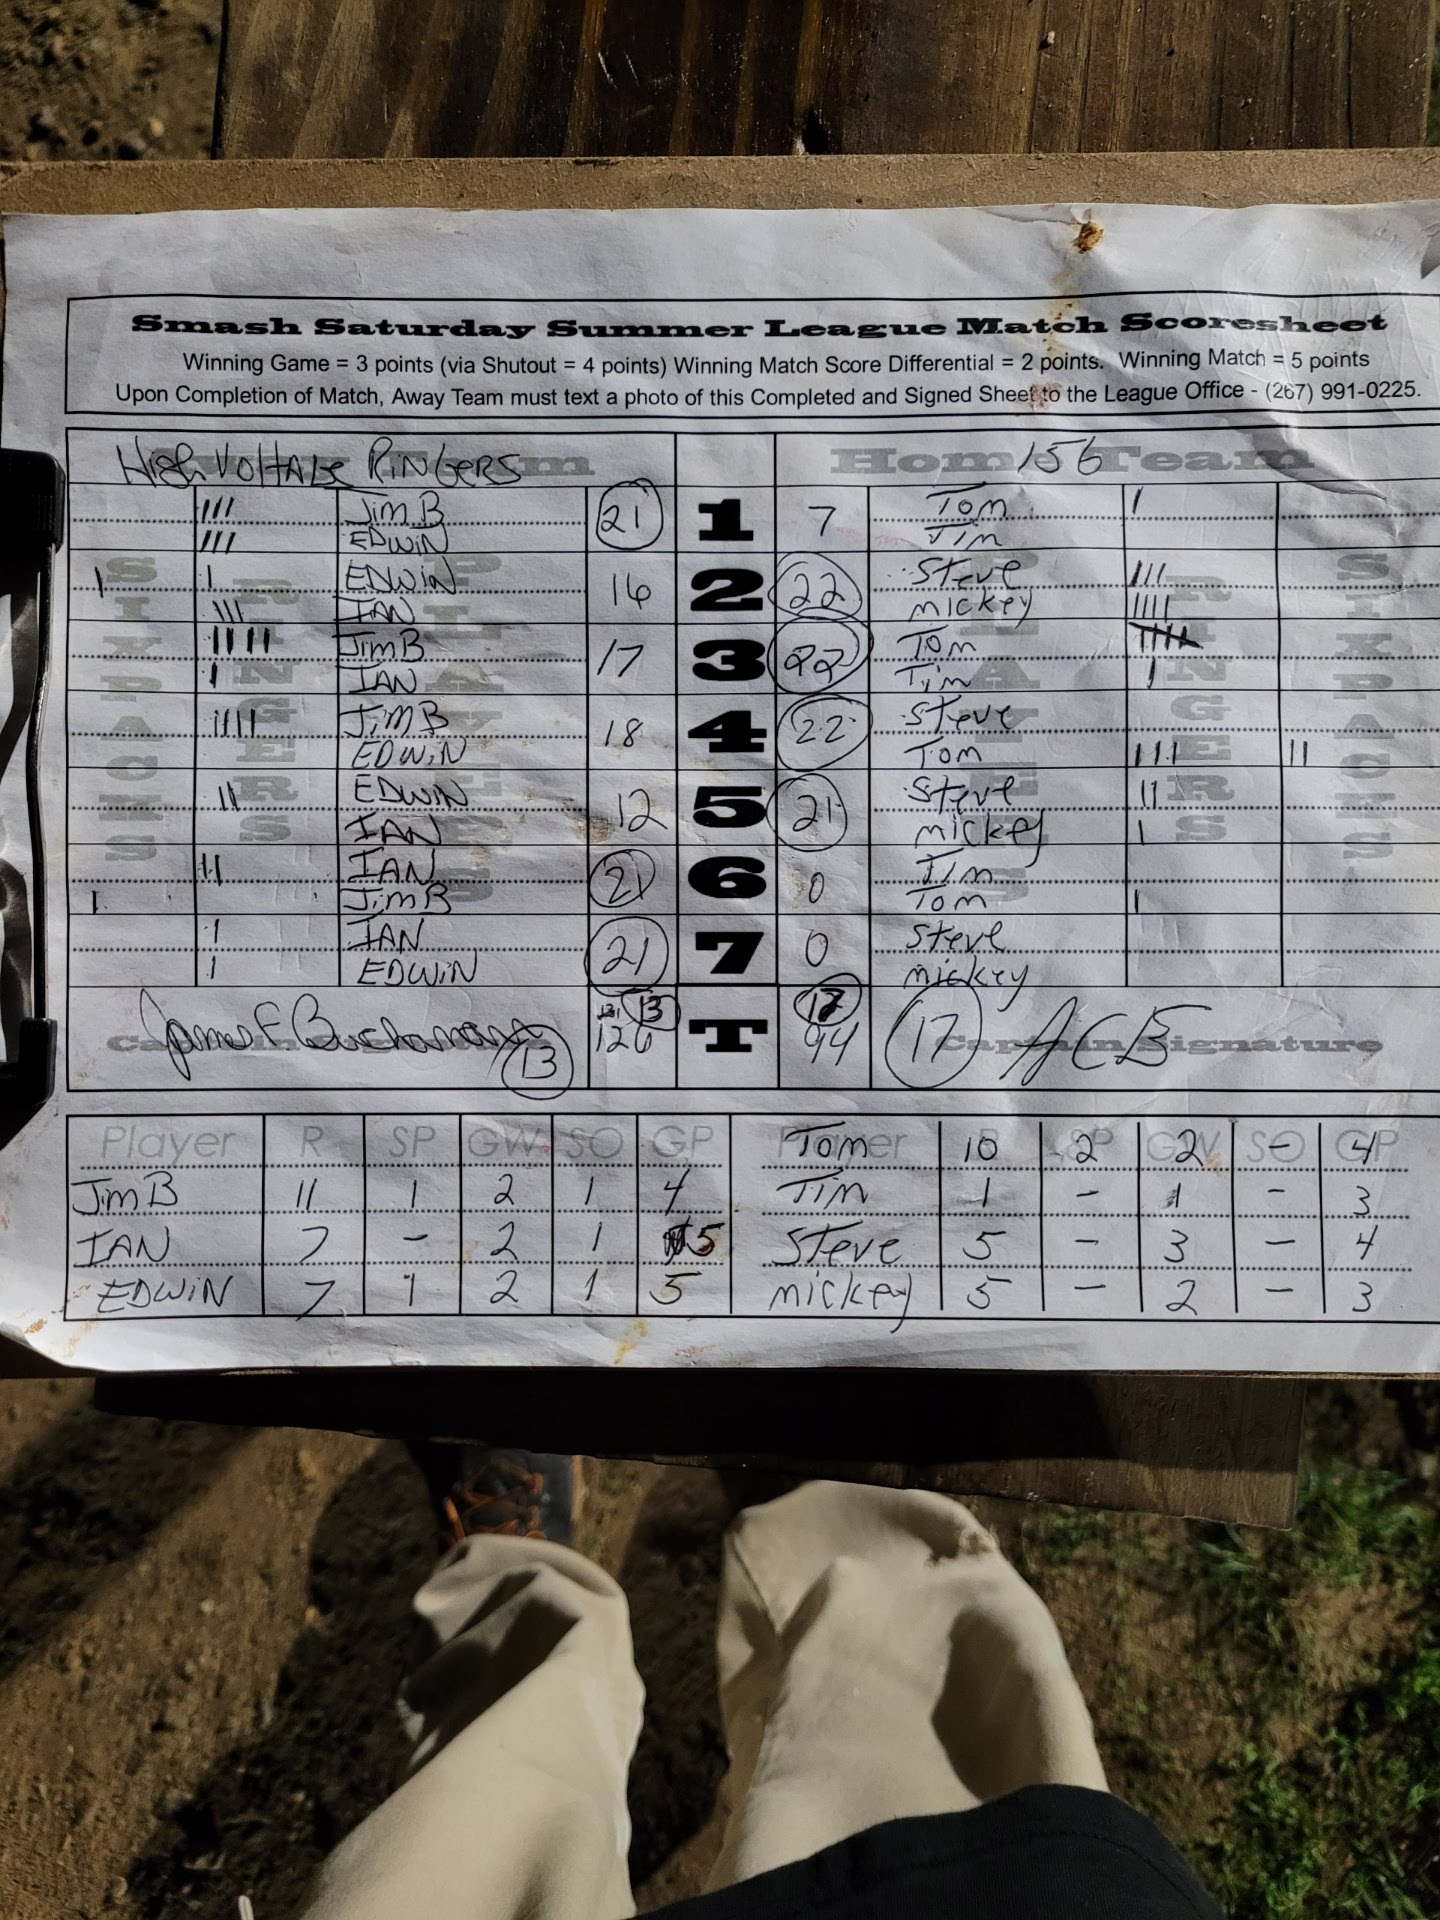 Smash Saturday Summer League Match Scoresheet
Winning Game = 3 points (via Shutout = 4 points) Winning Match Score Differential = 2 points. Winning Match = 5 points
Upon Completion of Match, Away Team must text a photo of this Completed and Signed Sheet to the League Office - (267) 991-0225.
High Voltage Ringers Home Team 156
III Jim B 21 1 7 Tom I
III EDWIN Tim
I I EDWIN 16 2 22 Steve III
III IAN mickey IIII
IIII Jim B 17 3 22 Tom IIII
I IAN Tim I
IIII Jim B 18 4 22 Steve
EDWIN Tom III II
II EDWIN 12 5 21 Steve II
IAN mickey I
II IAN 21 6 0 Tim
I Jim B Tom I
I IAN 21 7 0 Steve
I EDWIN mickey
SIXPACKS RINGERS PLAYERS PLAYERS RINGERS SIXPACKS
James F Buchanan 13 13 126 T 17 94 17 Captain Signature
Player R SP GW SO GP Tom 10 2 2 - 4
Jim B 11 1 2 1 4 Tim 1 - 1 - 3
IAN 7 - 2 1 5 Steve 5 - 3 - 4
EDWIN 7 1 2 1 5 mickey 5 - 2 - 3